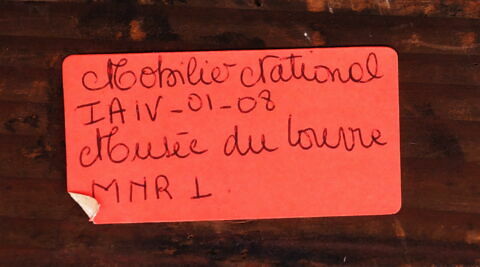 Mobilier National
IAIV-01-08
Musée du Louvre
MNR 1